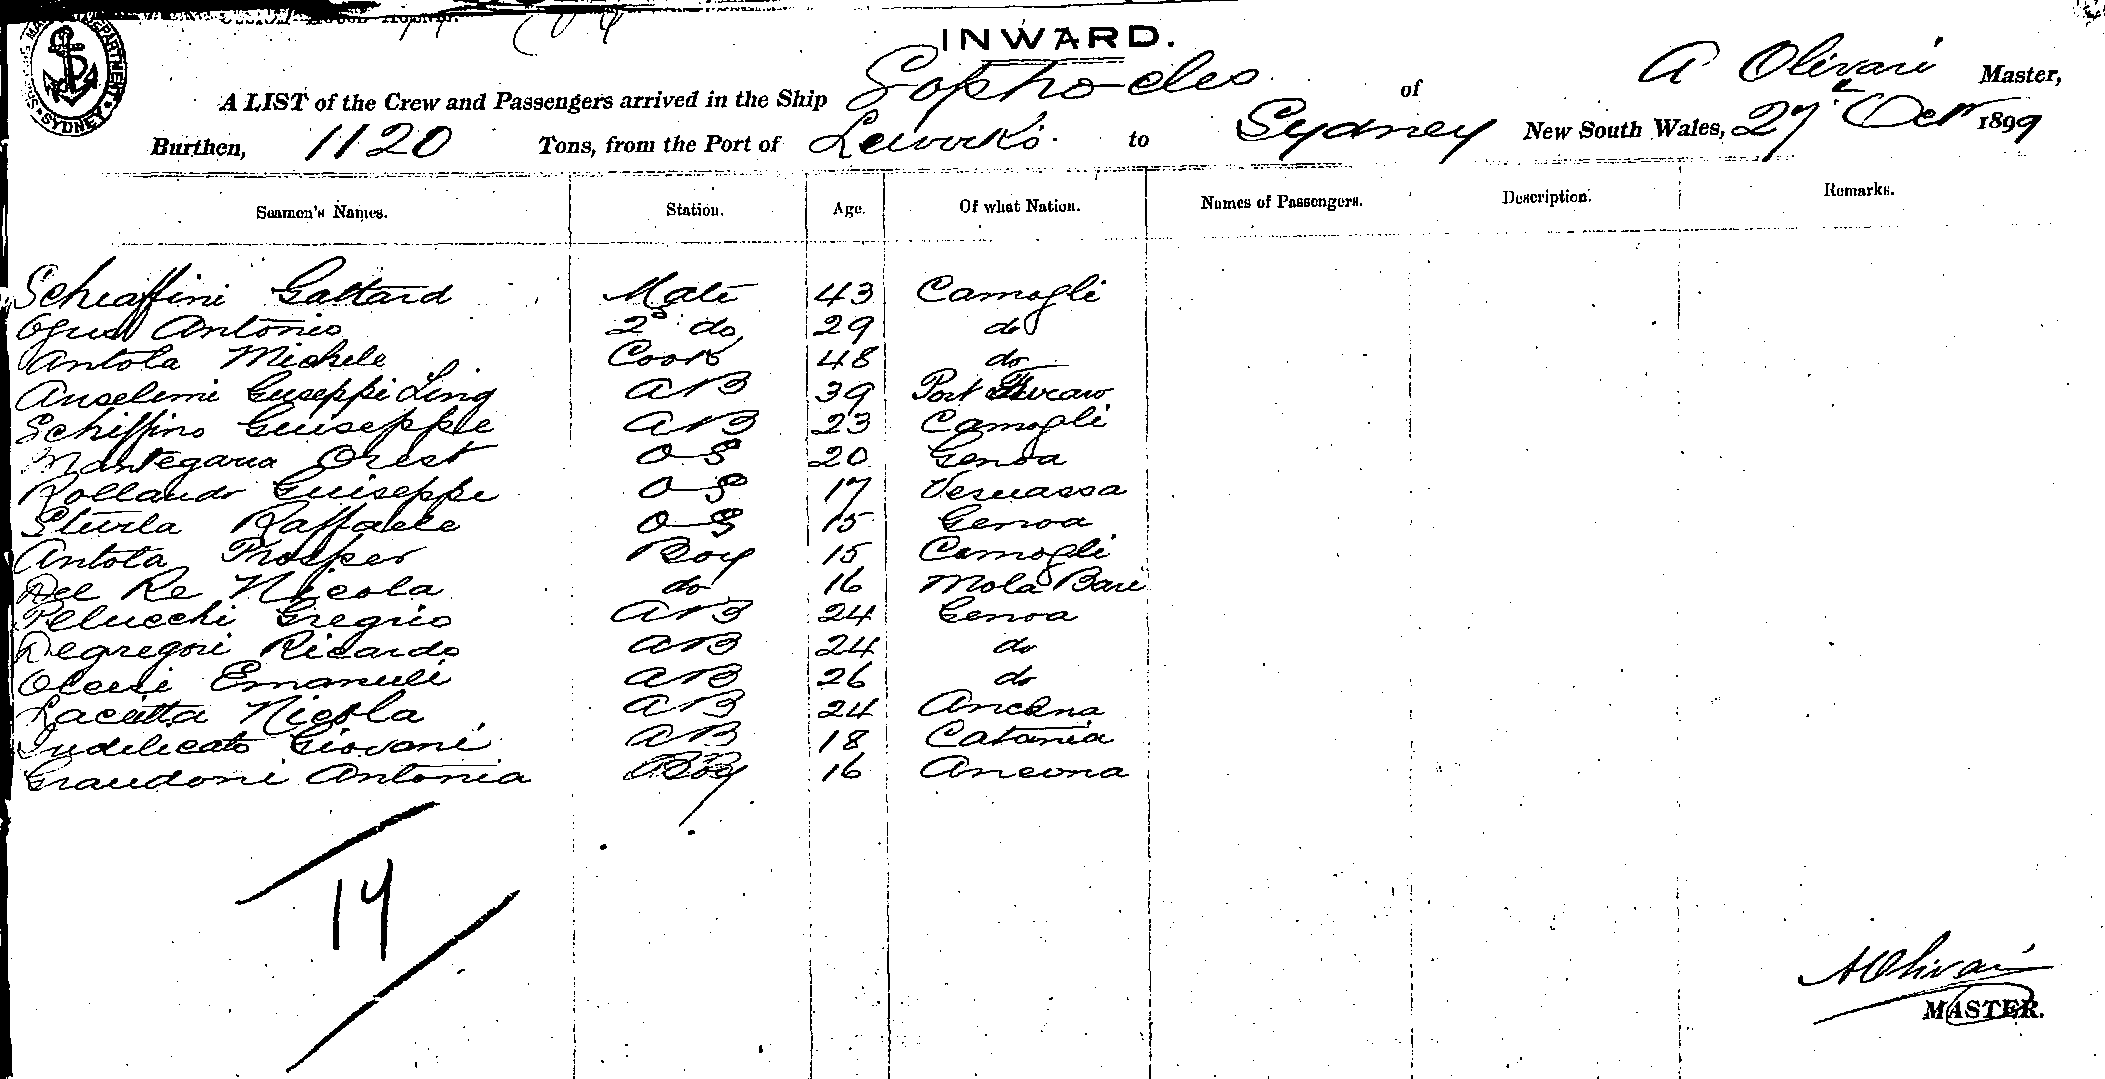 INWARD.
A LIST of the Crew and Passengers arrived in the Ship Sophocles of A Olivari Master,
Burthen, 1120 Tons, from the Port of to Sydney New South Wales, 27 Octr 1899
Seamen's Names. Station. Age. Of what Nation. Names of Passengers. Description. Remarks.
Schiaffini Gattard Mate 43 Camogli
Antonio 2d do 29 do
Antola Michele Cook 48 do
Anselimi Guseppi Ling AB 39 Port
Schiffino Guiseppe AB 23 Camogli
Mantegana Orest OS 20 Genoa
Rollando Guiseppi OS 17 Vernassa
Sturla Raffaele OS 15 Genoa
Antola Prosper Boy 15 Camogli
Del Re Nicola do 16 Mola Bari
Pelucchi Gregrio AB 24 Genoa
Degregori Ricardo AB 24 do
Emanueli AB 26 do
Lacutta Nicola AB 24 Ancona
Indelicato Giovani AB 18 Catania
Graudoni Antonia Boy 16 Ancona
14
A Olivari
MASTER.
SYDNEY